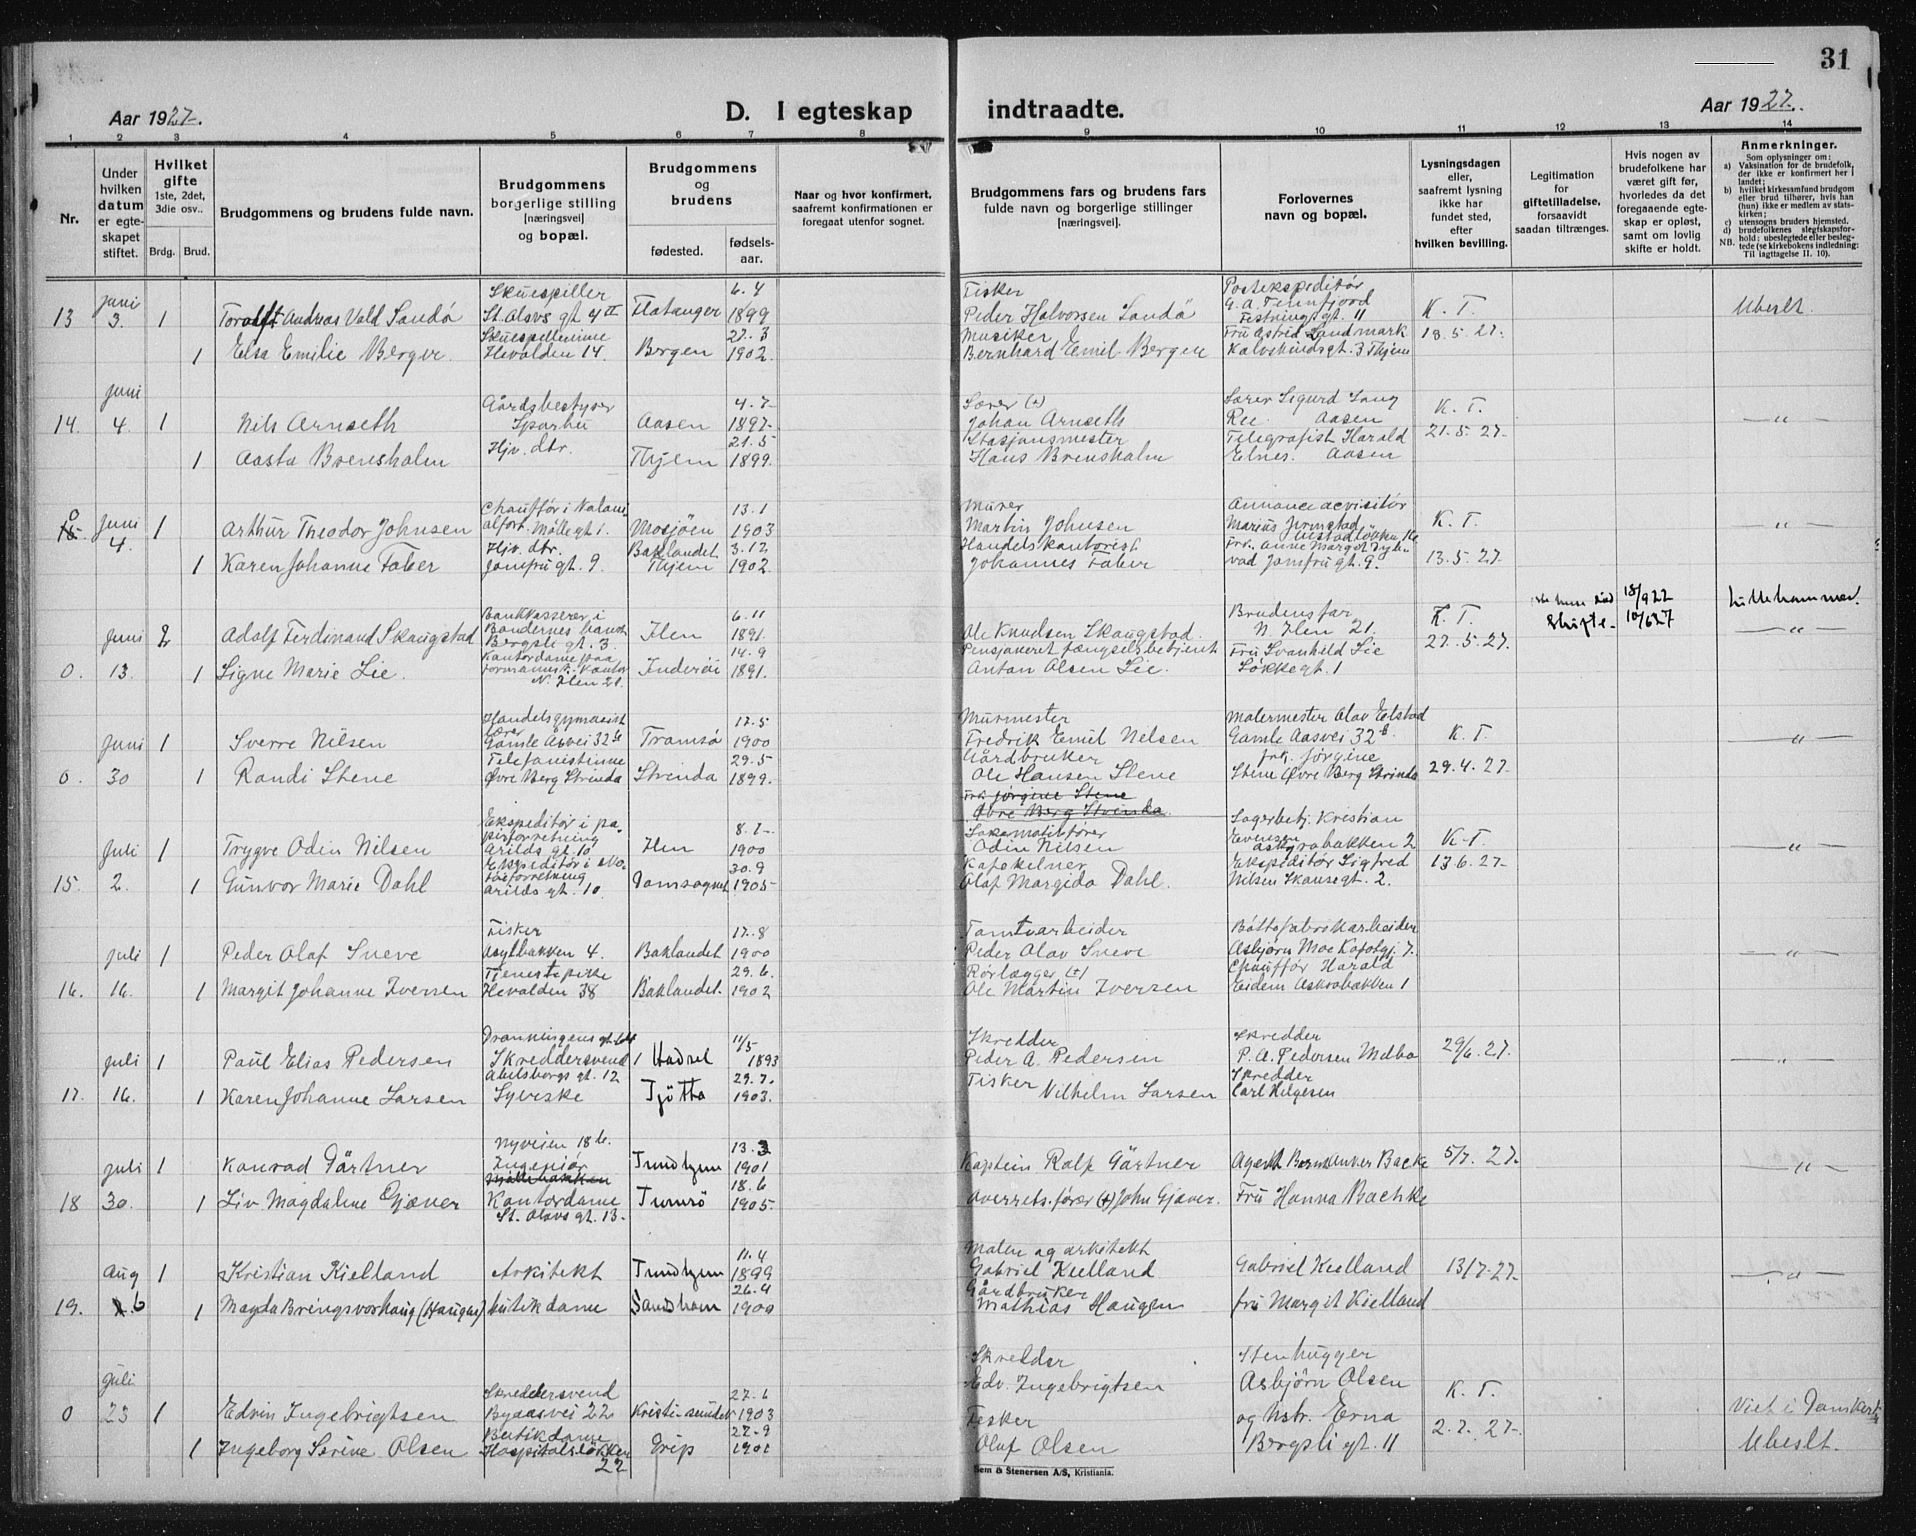 31
Aar 1927.
D. I egteskap indtraadte.
Aar 1927.
1 2 3 4 5 6 7 8 9 10 11 12 13 14
Nr.
Under hvilken datum er egteskapet stiftet.
Hvilket gifte 1ste, 2det, 3die osv..
Brdg. Brud.
Brudgommens og brudens fulde navn.
Brudgommens borgerlige stilling [næringsvei] og bopæl.
Brudgommens og brudens
fødested. fødselsaar.
Naar og hvor konfirmert, saafremt konfirmationen er foregaat utenfor sognet.
Brudgommens fars og brudens fars fulde navn og borgerlige stillinger [næringsvei].
Forlovernes navn og bopæl.
Lysningsdagen eller, saafremt lysning ikke har fundet sted, efter hvilken bevilling.
Legitimation for giftetilladelse, forsaavidt saadan tiltrænges.
Hvis nogen av brudefolkene har været gift før, hvorledes det foregaaende egteskap er opløst, samt om lovlig skifte er holdt.
Anmerkninger.
Som oplysninger om:
a) Vaksination for de brudefolk, der ikke er konfirmert her i landet;
b) hvilket kirkesamfund brudgom eller brud tilhører, hvis han (hun) ikke er medlem av statskirken;
c) utensogns bruders hjemsted.
d) brudefolkenes slegtskapsforhold: ubeslegtede eller beslegtede (se kirkebokens indledning:
NB. Til iagttagelse II. 10).
Skuespiller 6.4 Fisker Postekspeditør
juni St. Olavs gt 4 II G. A. Fennfjord
13 3. 1 Toralf Andreas Vald Sandø Flatanger 1899 Peder Halvorsen Sandø Festningsgt. 11 K. T. Ubeslt.
Skuespellerinne 27.3 Musiker Fru Astrid Landmark 18.5.27.
1 Elsa Emilie Berger. Hevolden 14. Bergen 1902. Bernhard Emil Bergen Kalvskindsgt. 3 Thjem
juni Gårdsbestyrer 4.7 Lærer (+) Lærer Sigurd Lang
14. 4. 1 Nils Arnseth Sparbu Aasen 1897 Johan Arnseth Ree. Aasen K. T. — " —
Hjv. dtr. 21.5 Stasjonsmester Telegrafist Harald 21.5.27.
1 Aasta Brensholm Thjem 1899. Hans Brensholm Elnes. Aasen
0 Chauffør i 13.1 Murer Annonceacvisitør
15 juni 4. 1 Arthur Theodor Johnsen Møllegt 1. Mosjøen 1903 Martin Johnsen Marius K. T. — " —
Hjv. dtr. Baklandet 3.12 Handelskontorist Frk. Anne Margot
1 Karen Johanne Faber Jomfrugt. 9. Thjem 1902. Johannes Faber Jomfrugt. 9. 13.5.27.
Bankkasserer i 6.11 Brudens far K. T. 18/9 22 Lillehammer.
juni 2 Adolf Ferdinand Skaugstad Bøndernes bank Bergsli gt. 3 Ilen 1891. Ole Knudsen Skaugstad. N. Ilen 21. Skifte 10/6 27 — " —
Kontordame paa 14.9 Pensjoneret fængselsbetjent Fru Svanhild Lie 27.5.27.
0. 13. 1 Signe Marie Lie. N. Ilen 21. Inderøi 1891. Anton Olsen Lie. Løkkegt. 1
Handelsgymnasist lærer 17.5 Murmester Malermester Olav Eelstad
juni 1 Sverre Nilsen Gamle Åsvei 32 b Tromsø 1900 Fredrik Emil Nilsen Gamle Aasvei 32 b. K. T. — " —
Telefonistinne 29.5 Gårdbruker frk. Jørgine
0. 30 1 Randi Stene Øvre Berg Strinda Strinda 1899. Ole Hansen Stene Stene Øvre Berg Strinda 29.4.27.
Frk Jørgine Stene
Øvre Berg Strinda
Ekspeditør i papirforretning 8.7 Lokomotivfører Lagerbetj. Kristian
juli 1 Trygve Odin Nilsen Arilds gt. 10 Ilen 1900 Odin Nilsen Evensen Asylbakken 2 K. T. — " —
Ekspeditør i 30.9 Kafekelner Ekspeditør Sigfred 17.6.27.
15. 2. 1 Gunvor Marie Dahl Arilds gt. 10. Domsognet 1905 Olaf Margido Dahl. Nilsen Skansegt. 2.
Fisker 17.8 Tomtearbeider
juli 1 Peder Olaf Sneve Asylbakken 4. Baklandet 1900 Peder Olav Sneve Asbjørn Moe 7. — " —
Tjenestepike 29.6. Rørlægger (+) Chauffør Harald
16. 16. 1 Margit Johanne Iversen Hevolden 38 Baklandet. 1902 Ole Martin Iversen Eidem 1
Dronningens gt. 11/5 Skredder Skredder
juli 1 Paul Elias Pedersen Skreddersvend Hadsel 1893 Peder A. Pedersen P. A. Pedersen Melbo 29/6.27. "
Abelsborgs gt. 12 29.7. Fisker Skredder
17. 16. 1 Karen Johanne Larsen Syerske Tjøtta 1903. Vilhelm Larsen Carl Helgesen
Nyveien 18 b. 13.3
juli 1 Konrad Gärtner Ingeniør Trondhjem 1901 Kaptein Rolf Gärtner Agent Backe 5/7.27. — " —
Møllebakken 18.6
18 30. 1 Liv Magdalene Gjæver Kontordame St. Olavs gt. 13. Tromsø 1905. Overrets.fører (+) John Gjæver. Fru Hanna Bachke
11.4 Maler og arkitekt
aug 1 Kristian Kielland Arkitekt Trondhjem 1899 Gabriel Kielland Gabriel Kielland 13/7.27. — " —
26.4 Gårdbruker
19. 6 1 Magda Bringsvorhaug (Haugen) butikdame 1900 Mathias Haugen fru Margit Kielland
juli Skreddersvend 27.6 Skredder Stenhugger
0 23 1 Edvin Ingebrigtsen Byaasvei 22 Kristiansund 1903 Edv. Ingebrigtsen Asbjørn Olsen K. T. Viet i Domkerk
Butikdame 27.9 Fisker og hstr. Erna 2.7.27.
1 Ingeborg Serine Olsen Hospitalsløkken 22 Grip 1901 Olaf Olsen Bergsli gt. 11 Ubeslt.
Sem & Stenersen A/S, Kristiania.